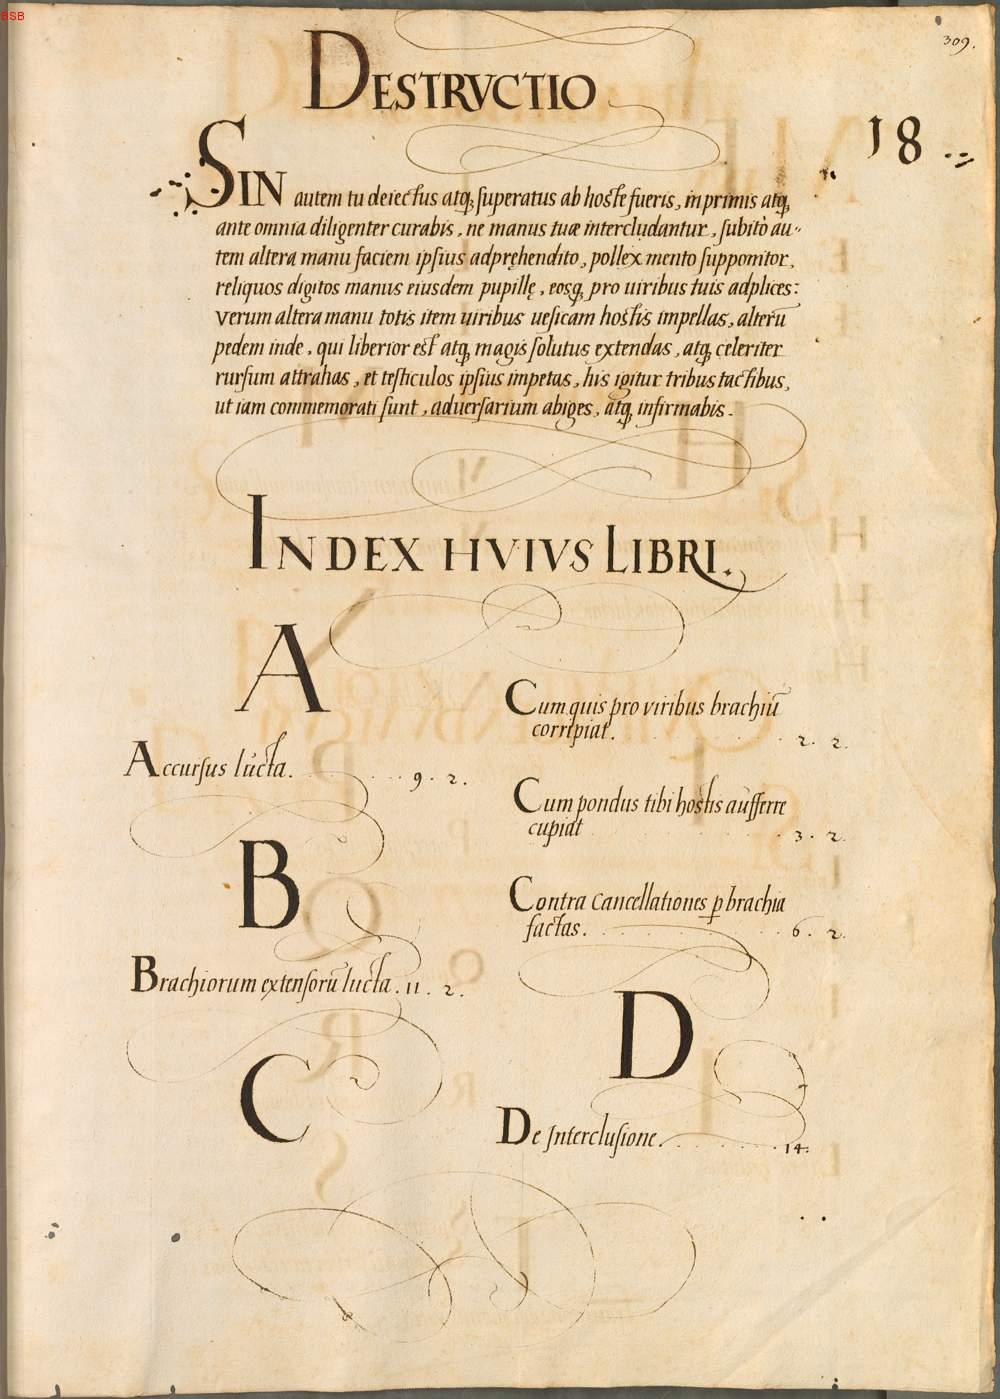 BSB
309.
DESTRVCTIO
18
SIN autem tu deiectus atq; superatus ab hoste fueris, inprimis atq;
ante omnia diligenter curabis, ne manus tuæ intercludantur, subitò au-
tem altera manu faciem ipsius adpręhendito, pollex mento supponitor,
reliquos digitos manus eiusdem pupillę, eosq; pro uiribus tuis adplices:
verum altera manu totis item uiribus uesicam hostis impellas, alterū
pedem inde, qui liberior est atq; magis solutus extendas, atq; celeriter
rursum attrahas, et testiculos ipsius impetas, his igitur tribus tactibus,
ut iam commemorati sunt, aduersarium abiges, atq; infirmabis.
INDEX HVIVS LIBRI.
A
Accursus lucta. 9. 2.
B
Brachiorum extensorū lucta. 11. 2.
C
Cum quis pro viribus brachiū
corripiat. 2. 2.
Cum pondus tibi hostis aufferre
cupiat 3. 2.
Contra cancellationes ꝑ brachia
factas. 6. 2.
D
De Interclusione. 14.